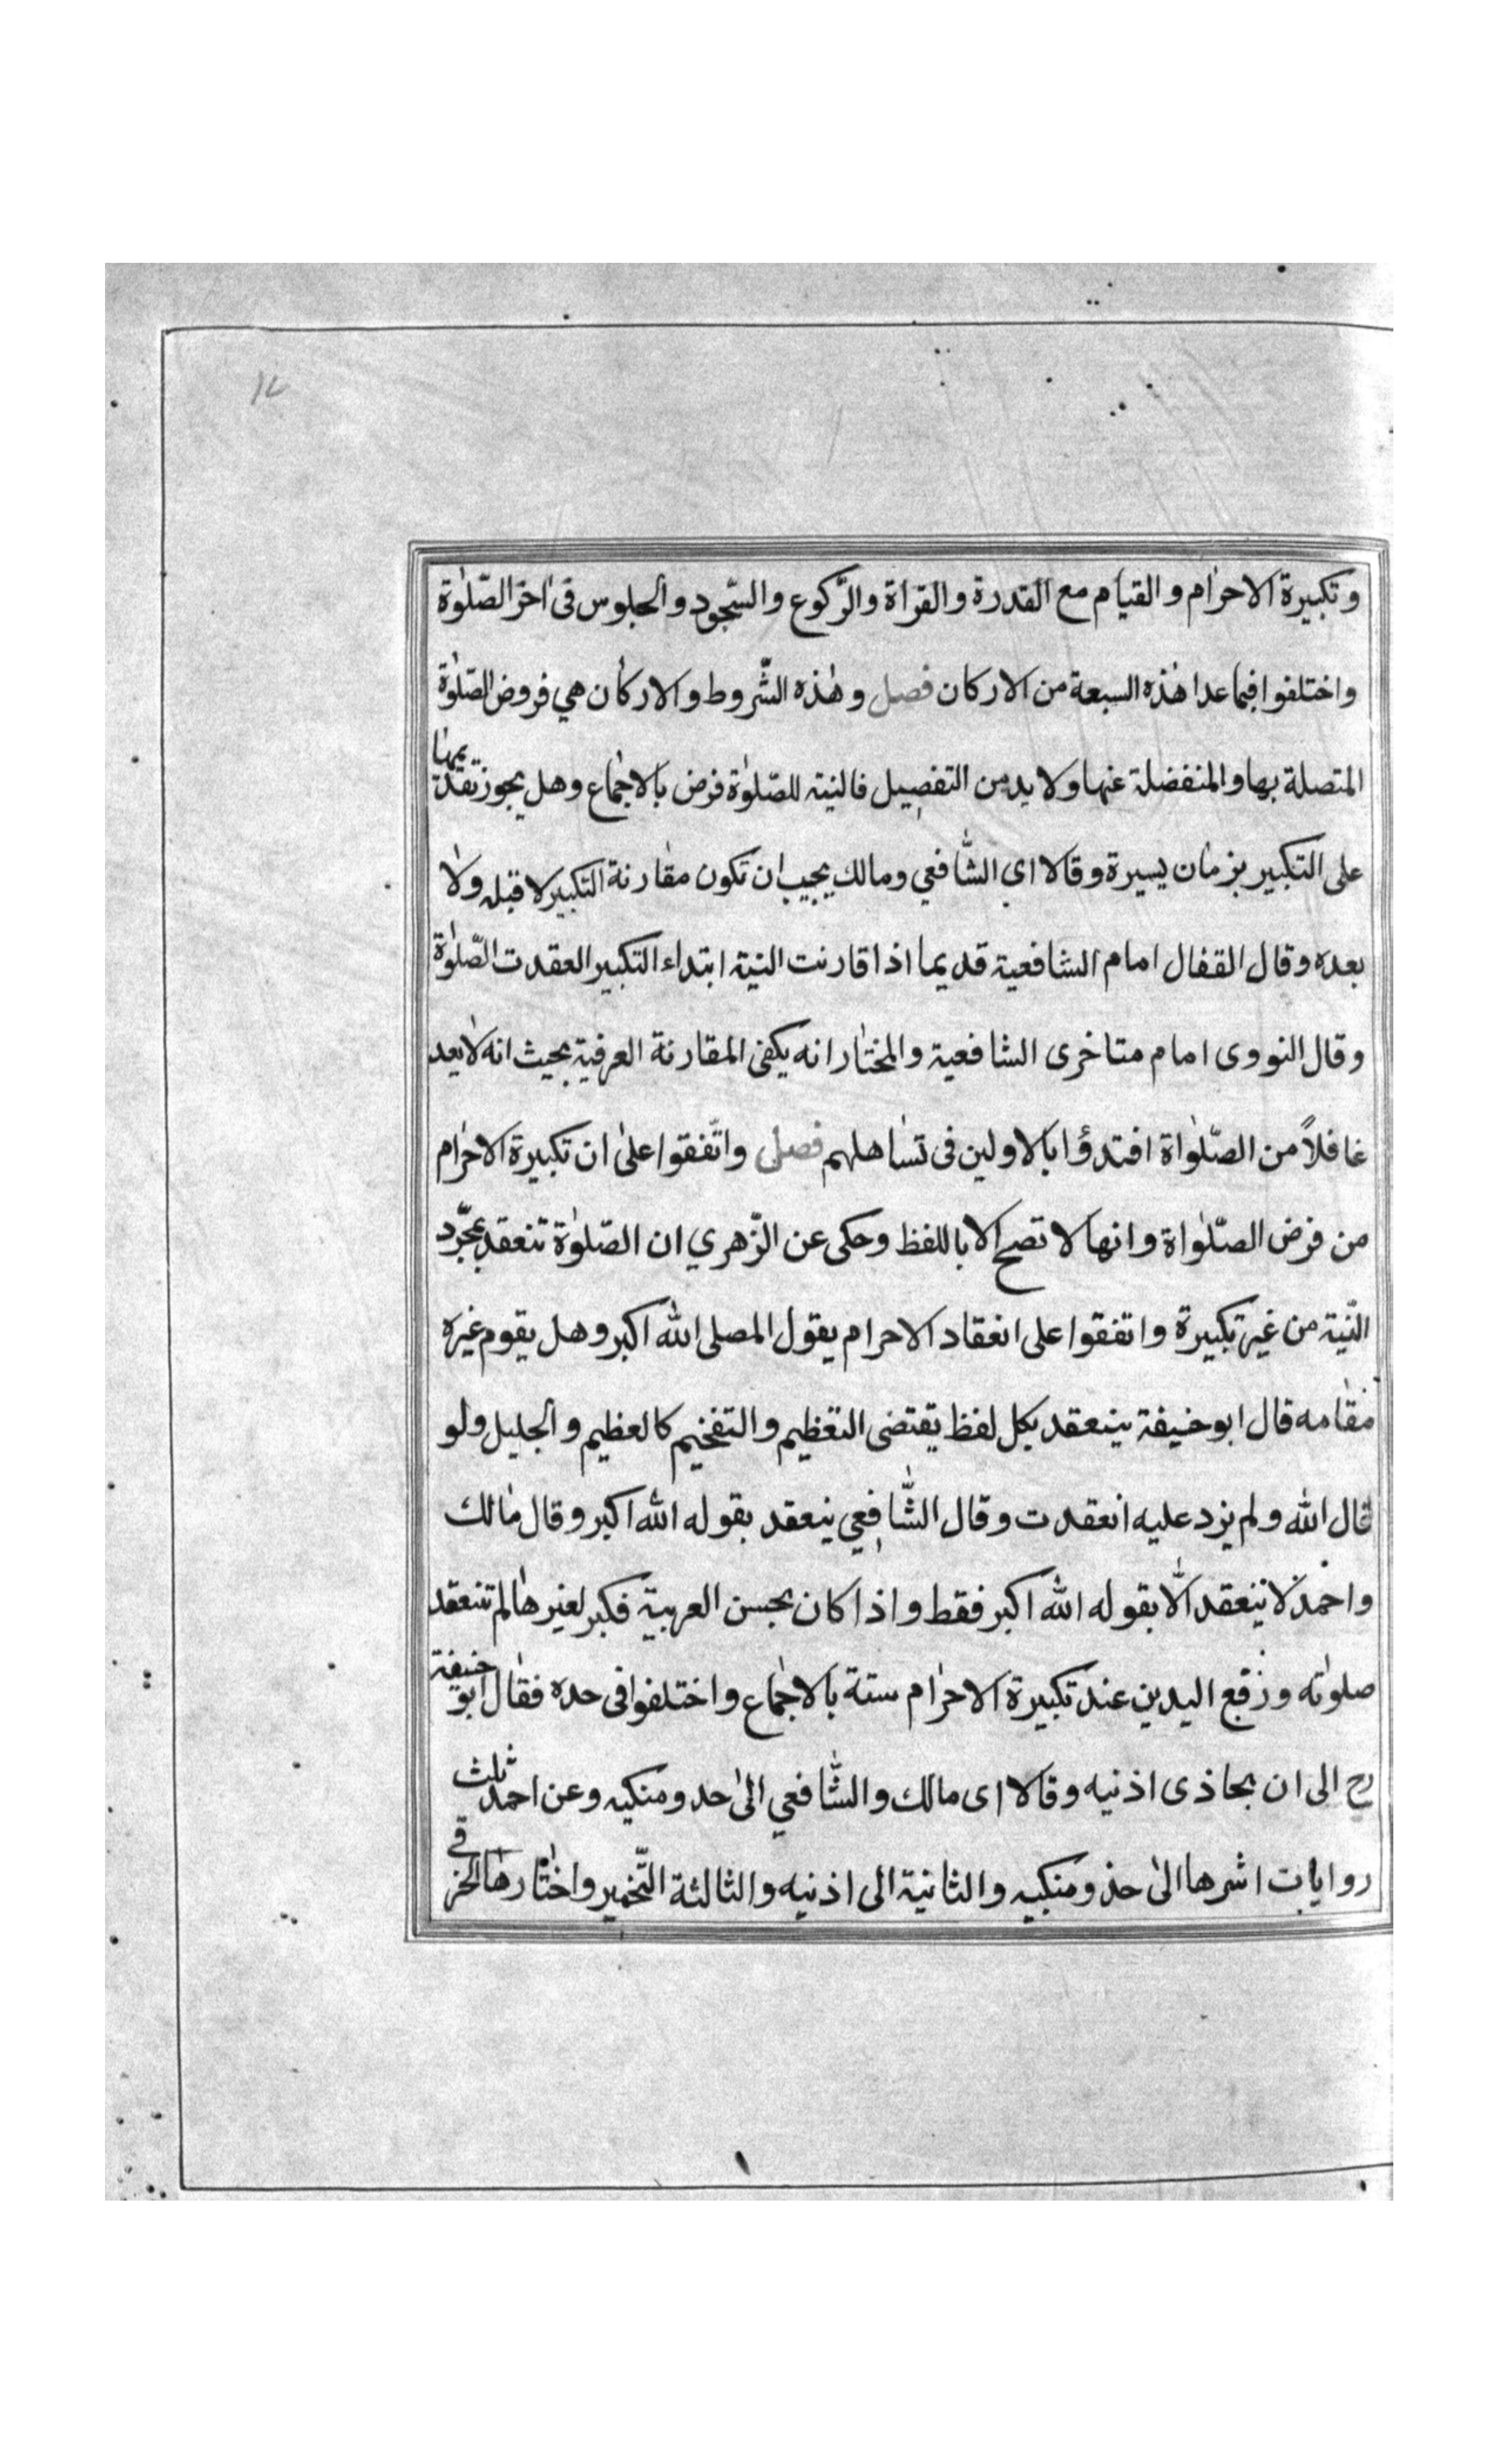 ١٧
وتكبيرة الاحرام والقيام مع القدرة والقراة والركوع والسّجود والجلوس فى اخر الصّلوٰة
واختلفوا فيما عدا هذه السبعة من الاركان فصل وهٰذه الشّروط والاركان هي فروض الصّلوٰة
المتصلة بها والمنفصلة عنها ولا بد من التفصيل فالنية للصّلوٰة فرض بالاجماع وهل يجوز تقديمها
على التكبير بزمان يسيرة وقالا اى الشّافعي ومالك يجيب ان تكون مقارنة التكبير لا قبله ولا
بعده وقال القفال امام الشافعية قديما اذا قارنت النية ابتداء التكبير العقدت الصّلوٰة
وقال النووى امام متاخرى الشافعية والمختار انه يكفى المقارنة العرفية بحيث انه لا يعد
غافلاً من الصّلوٰاة اقتدؤا بالاولين فى تساهلهم فصل واتّفقوا علىٰ ان تكبيرة الاحرام
من فرض الصّلوٰاة وانها لا تصح الا باللفظ وحكى عن الزّهري ان الصّلوٰة تنعقد بمجرّد
النّية من غير تكبيرة واتفقوا على انعقاد الاحرام يقول المصلى الله اكبر وهل يقوم غيره
مقامه قال ابو حنيفة ينعقد بكل لفظ يقتضى التعظيم والتفخيم كالعظيم والجليل ولو
قال الله ولم يزد عليه انعقدت وقال الشّافعي ينعقد بقوله الله اكبر وقال مالك
واحمد لا تنعقد الّا بقوله الله اكبر فقط واذا كان يحسن العربية فكبر لغيرها لم تنعقد
صلوٰته ورفع اليدين عند تكبيرة الاحرام سنة بالاجماع واختلفوا فى حده فقال ابو حنيفة
رح الى ان يحاذى اذنيه وقالا اى مالك والشّافعي الىٰ حد ومنكيه وعن احمد ثلث
روايات اشرها الىٰ حذو منكبيه والثانية الى اذنيه والثالثة التّخمير واختارها الخرقي